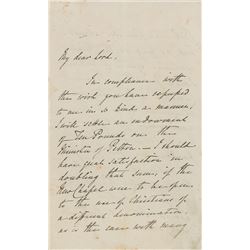 My dear Lord,
In compliance with
the wish you have expressed
to me in so kind a manner,
I will settle an endowment
of Ten Pounds on the
Minister of Pelton – I should
have great satisfaction in
doubling that sum, if the
New Chapel were to be open
to the use of Christians of
a different denomination,
as is the case with many